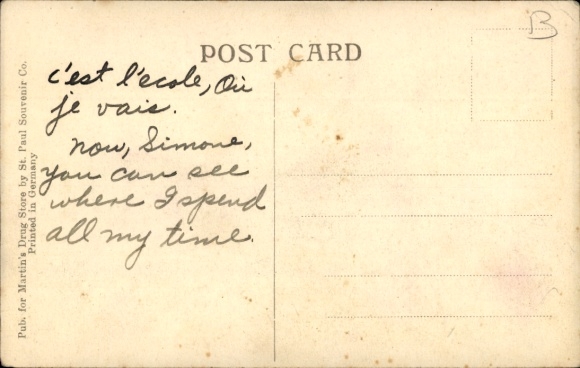 B
POST CARD
c'est l'ecole, Où
je vais.
now, Simone,
you can see
where I spend
all my time.
Pub. for Martin's Drug Store by St. Paul Souvenir Co.
Printed in Germany